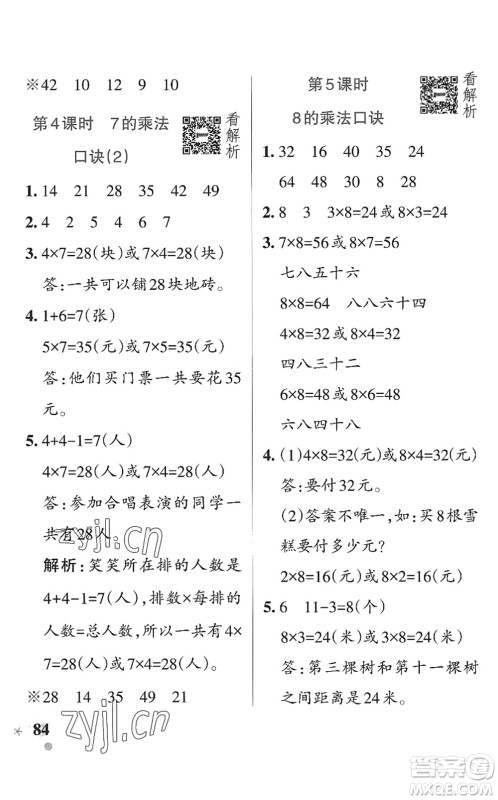 ※42 10 12 9 10
第4课时 7的乘法
口诀(2)
看解析
1. 14 21 28 35 42 49
2. 4 2 5 4 6 7
3. 4×7=28(块)或7×4=28(块)
答:一共可以铺28块地砖。
4. 1+6=7(张)
5×7=35(元)或7×5=35(元)
答:他们买门票一共要花35
元。
5. 4+4-1=7(人)
4×7=28(人)或7×4=28(人)
答:参加合唱表演的同学一
共有28人。
解析:笑笑所在排的人数是
4+4-1=7(人),每排的
人数×排的
人数=总人数,所以一共有4×
7=28(人)或7×4=28(人)。
※28 14 35 49 21
84
第5课时
8的乘法口诀
看解析
1. 32 16 40 35 24
64 48 8 30 28
2. 8 3 3×8=24或8×3=24
3. 7×8=56或8×7=56
七八五十六
8×8=64 八八六十四
4×8=32或8×4=32
四八三十二
6×8=48或8×6=48
六八四十八
4. (1)4×8=32(元)或8×4=32(元)
答:要付32元。
(2)答案不唯一,如:买8根雪
糕要付多少元?
2×8=16(元)或8×2=16(元)
5. 6 11-3=8(个)
8×3=24(米)或3×8=24(米)
答:第三棵树和第十一棵树
之间距离是24米。
zyjl.cn
zyjl.cn
答案圈
MXQE.COM